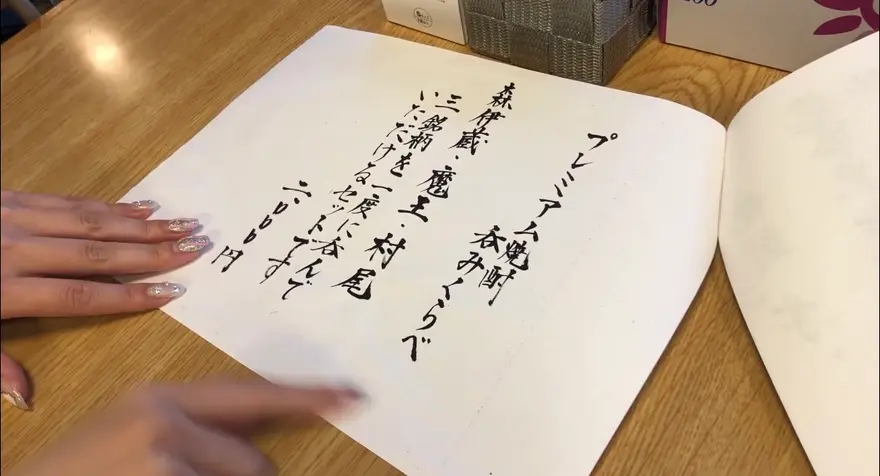 プレミアム焼酎
呑みくらべ
森伊蔵、魔王、村尾
三銘柄を一度に呑んで
いただけるセットです
二〇〇〇円
200